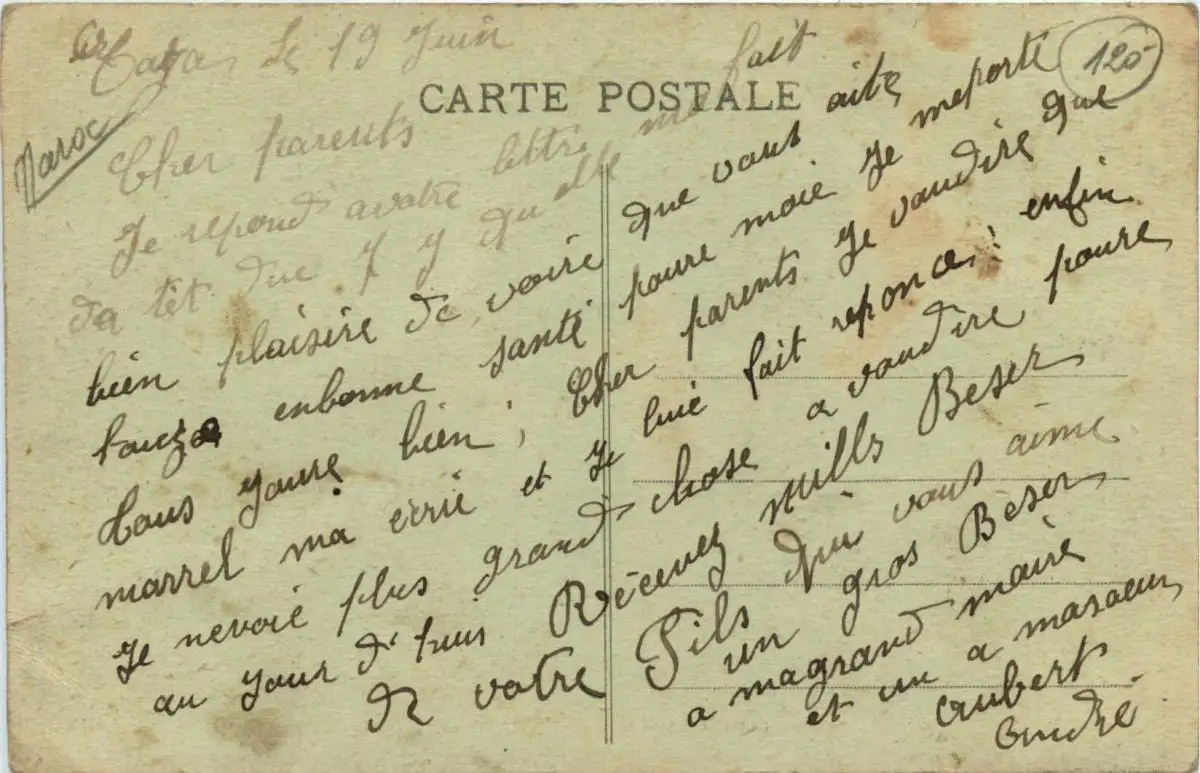 Taza, le 19 Juin
120
Maroc
CARTE POSTALE
Cher parents
Je repond avotre lettre ma fait
da têt que J y qu elle
bien plaisire de voire que vous aite
touze enbonne santé poure moie Je meporte
tous Jours bien ; Cher parents Je vaudire que
marrel ma écrié et Je luié fait reponce ; enfin
Je nevoié plus grand chose a vaudire poure
au Jour d'huis Récevez mills Beser
de votre Fils qui vous aimé
un gros Beser
a magrand mairé
et un a masoeur
Aubert
André